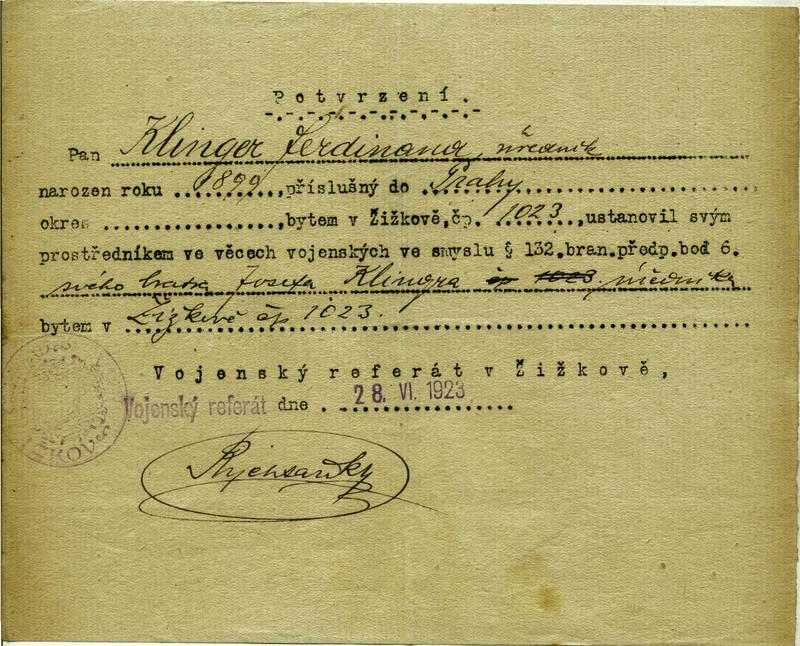 Potvrzení.
Pan Klinger Ferdinand, úředník
narozen roku 1899, příslušný do Prahy
okres ................, bytem v Žižkově, čp. 1023, ustanovil svým
prostředníkem ve věcech vojenských ve smyslu § 132. bran. předp. bod 6.
svého bratra Josefa Klingra čp 1023 úředníka
bytem v Žižkově čp 1023.
Vojenský referát v Žižkově,
Vojenský referát dne 28. VI. 1923